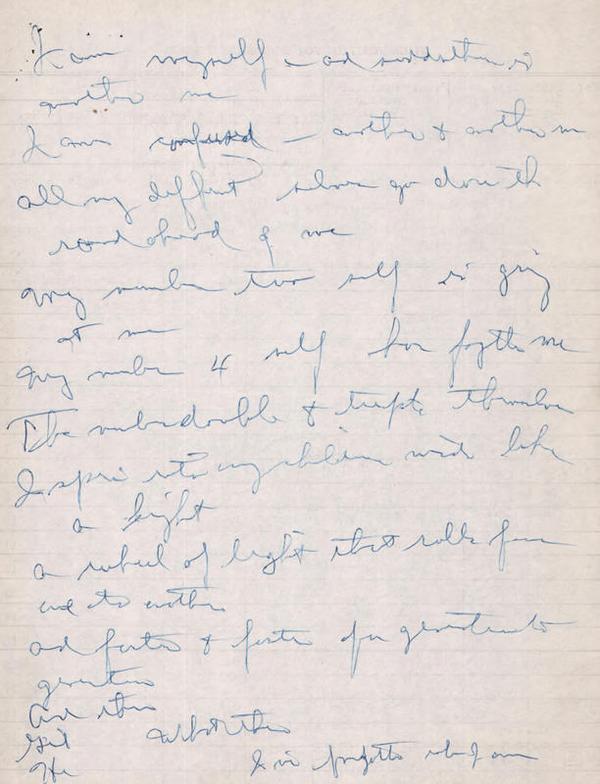 I am myself – and suddenly is
another me
I am confused – another & another me
all my different selves go down the
road ahead of me
My number two self is
at me
My number 4 self has forgotten me
The number double & triple themselves
I into my children's like
a light
a wheel of light that rolls from
one to another
and faster & faster from generation to
generation
And then
What then
I've forgotten who I am